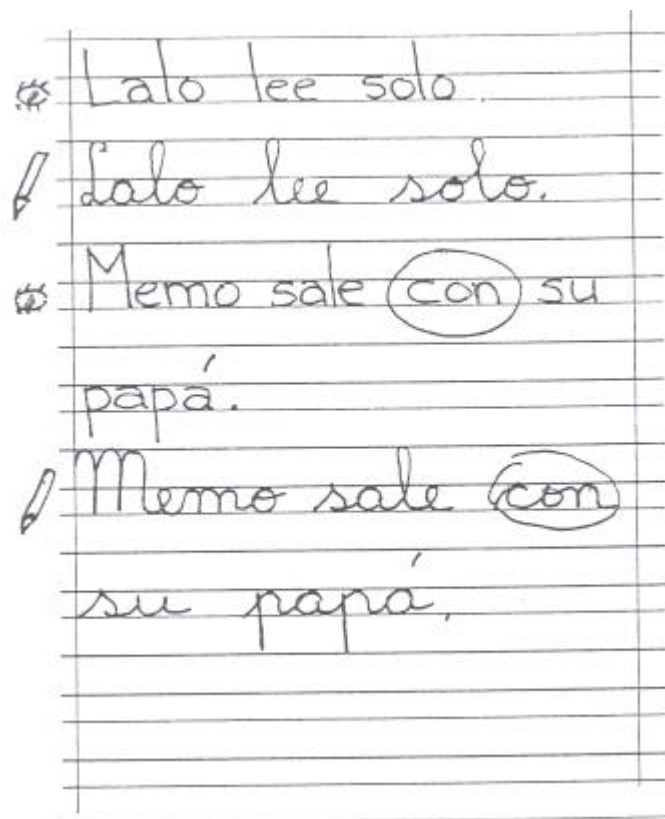 Lalo lee solo.
Lalo lee solo.
Memo sale con su
papá.
Memo sale con
su papá.